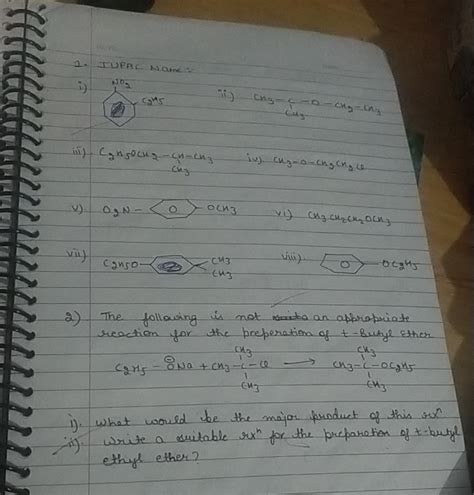 1. IUPAC Name:
i) NO2 C2H5 ii) CH3-C-O-CH2-CH3
CH3
iii) C2H5OCH2-CH-CH3 iv) CH3-O-CH2CH2Cl
CH3
v) O2N- -OCH3 vi) CH3CH2CH2OCH3
vii) C2H5O- CH3 CH3 viii) -OC2H5
2) The following is not an appropriate
reaction for the preperation of t-Butyl Ether
CH3 CH3
C2H5-ONa + CH3-C-Cl → CH3-C-OC2H5
CH3 CH3
i). What would be the major product of this rxn
ii). write a suitable rxn for the preparation of t-butyl
ethyl ether?